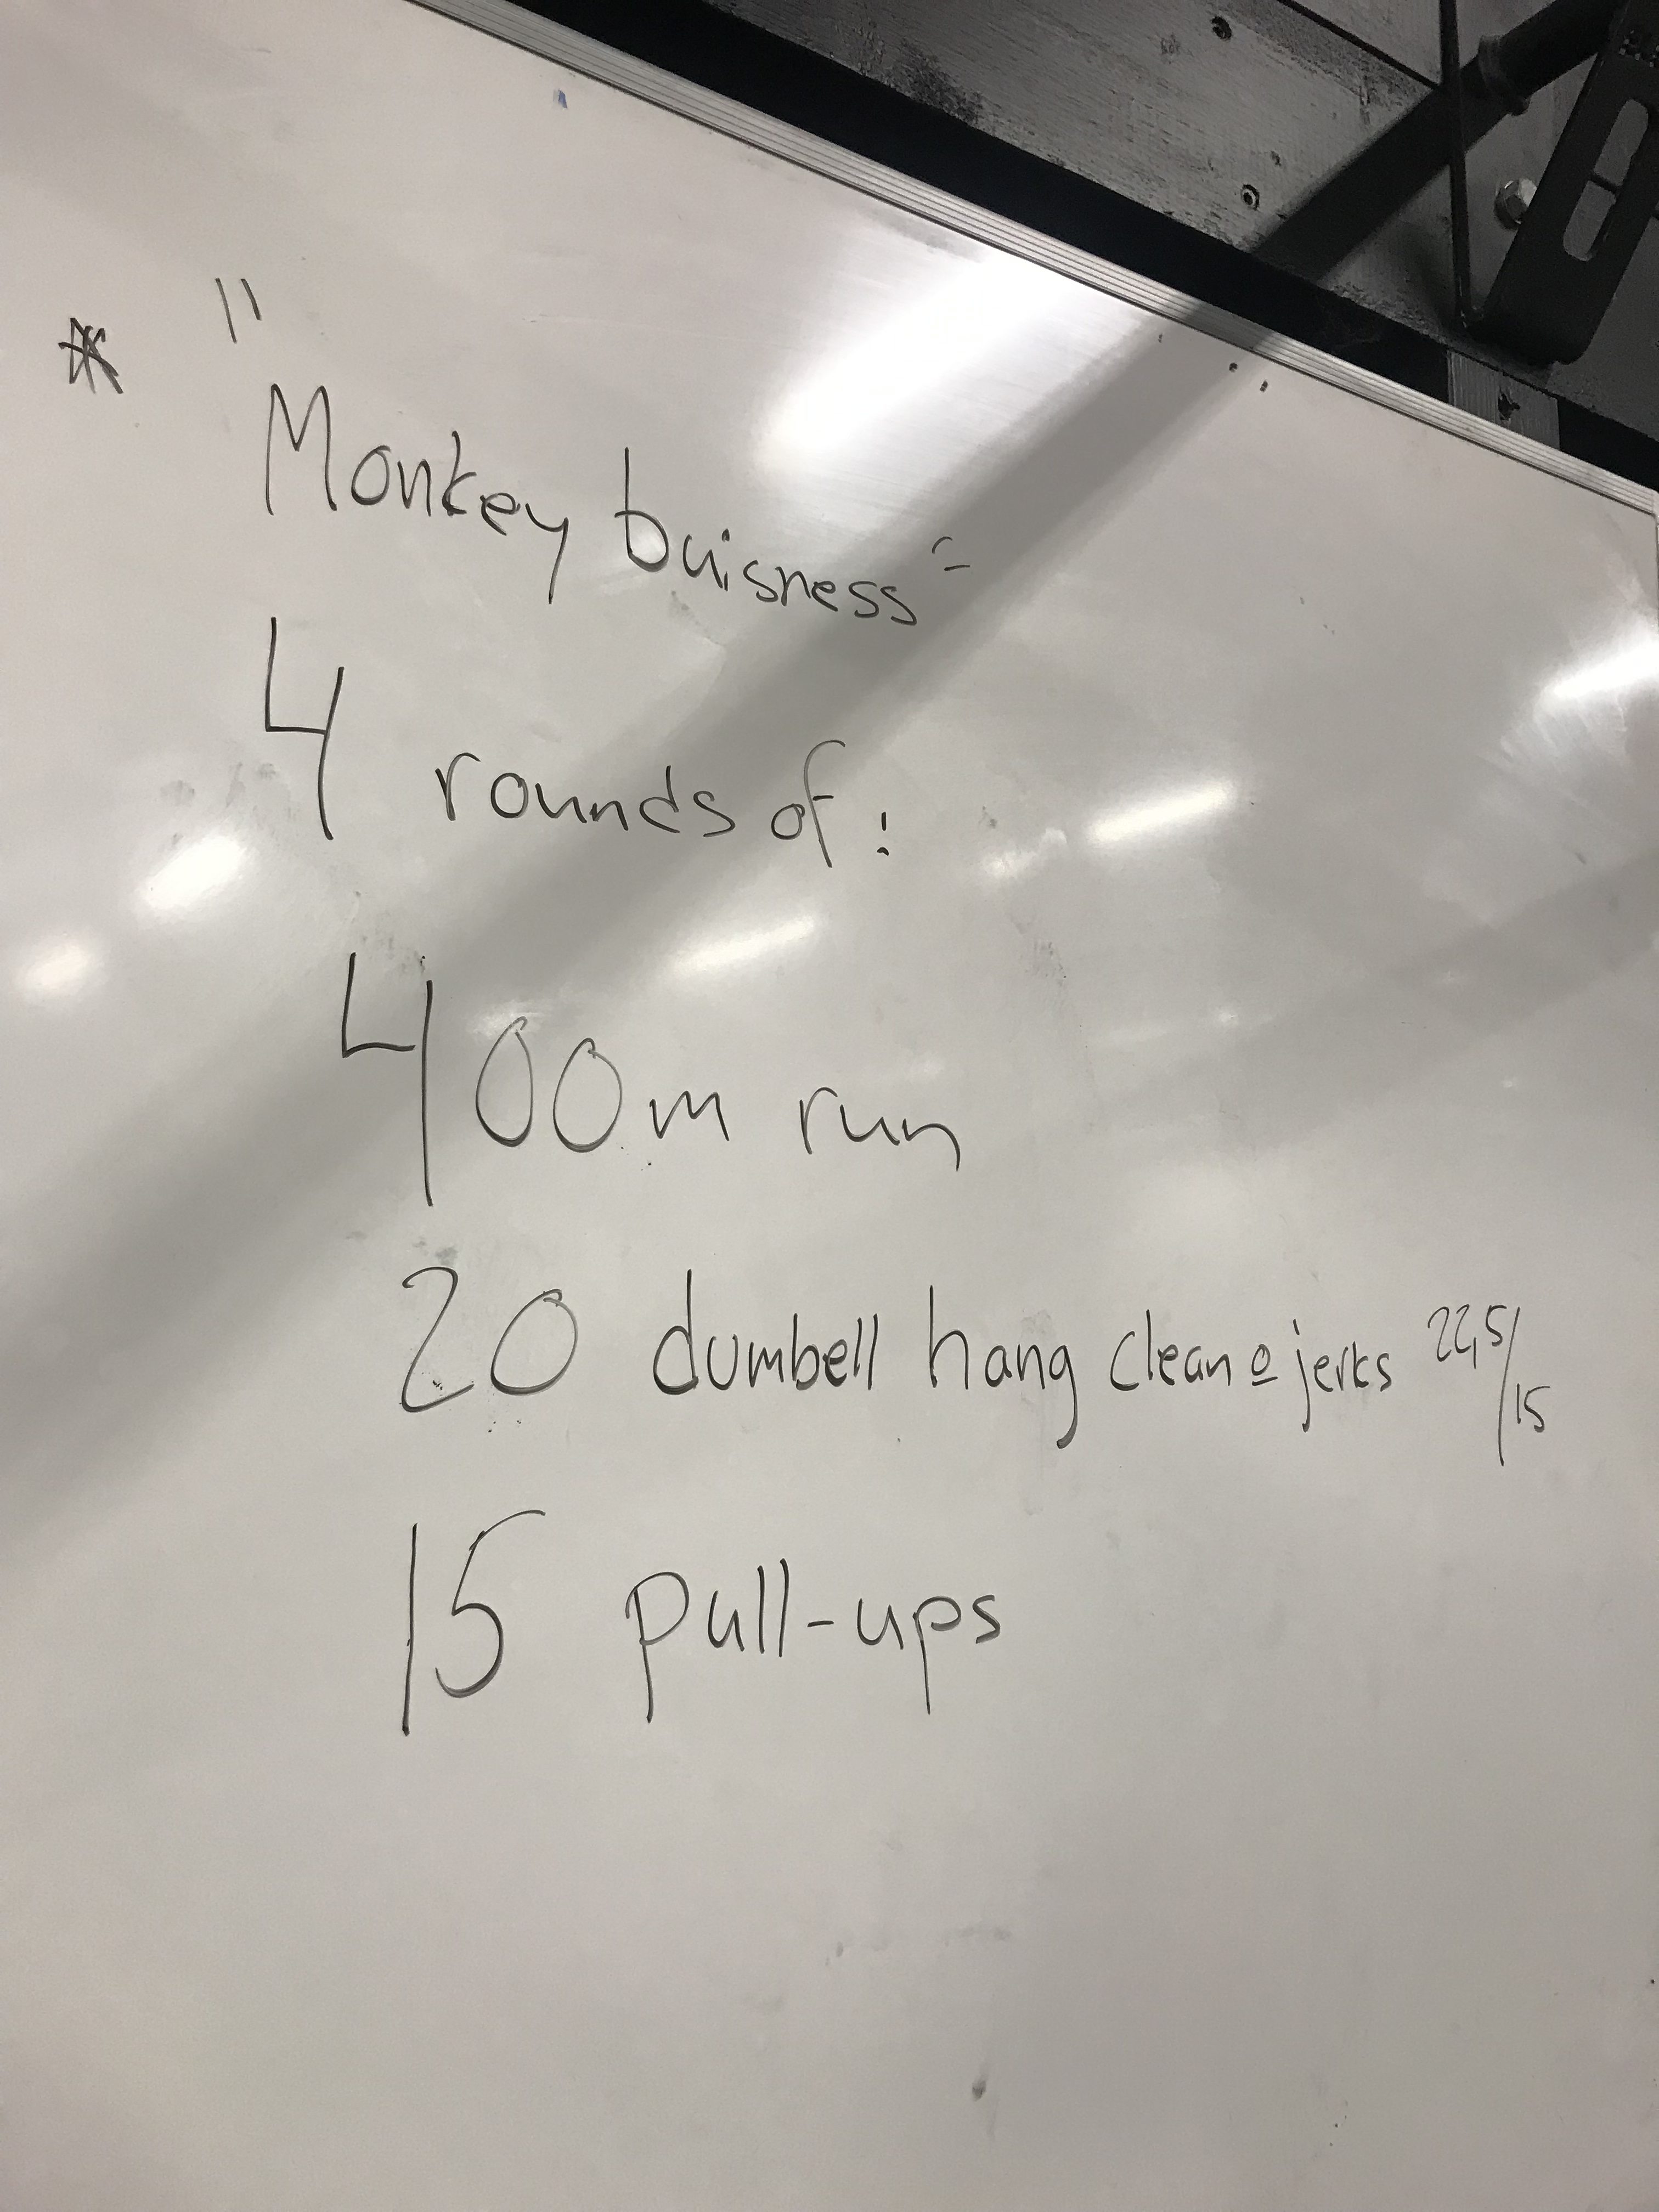 * "Monkey buisness"
4 rounds of:
400m run
20 dumbell hang clean & jerks 22,5/15
15 pull-ups